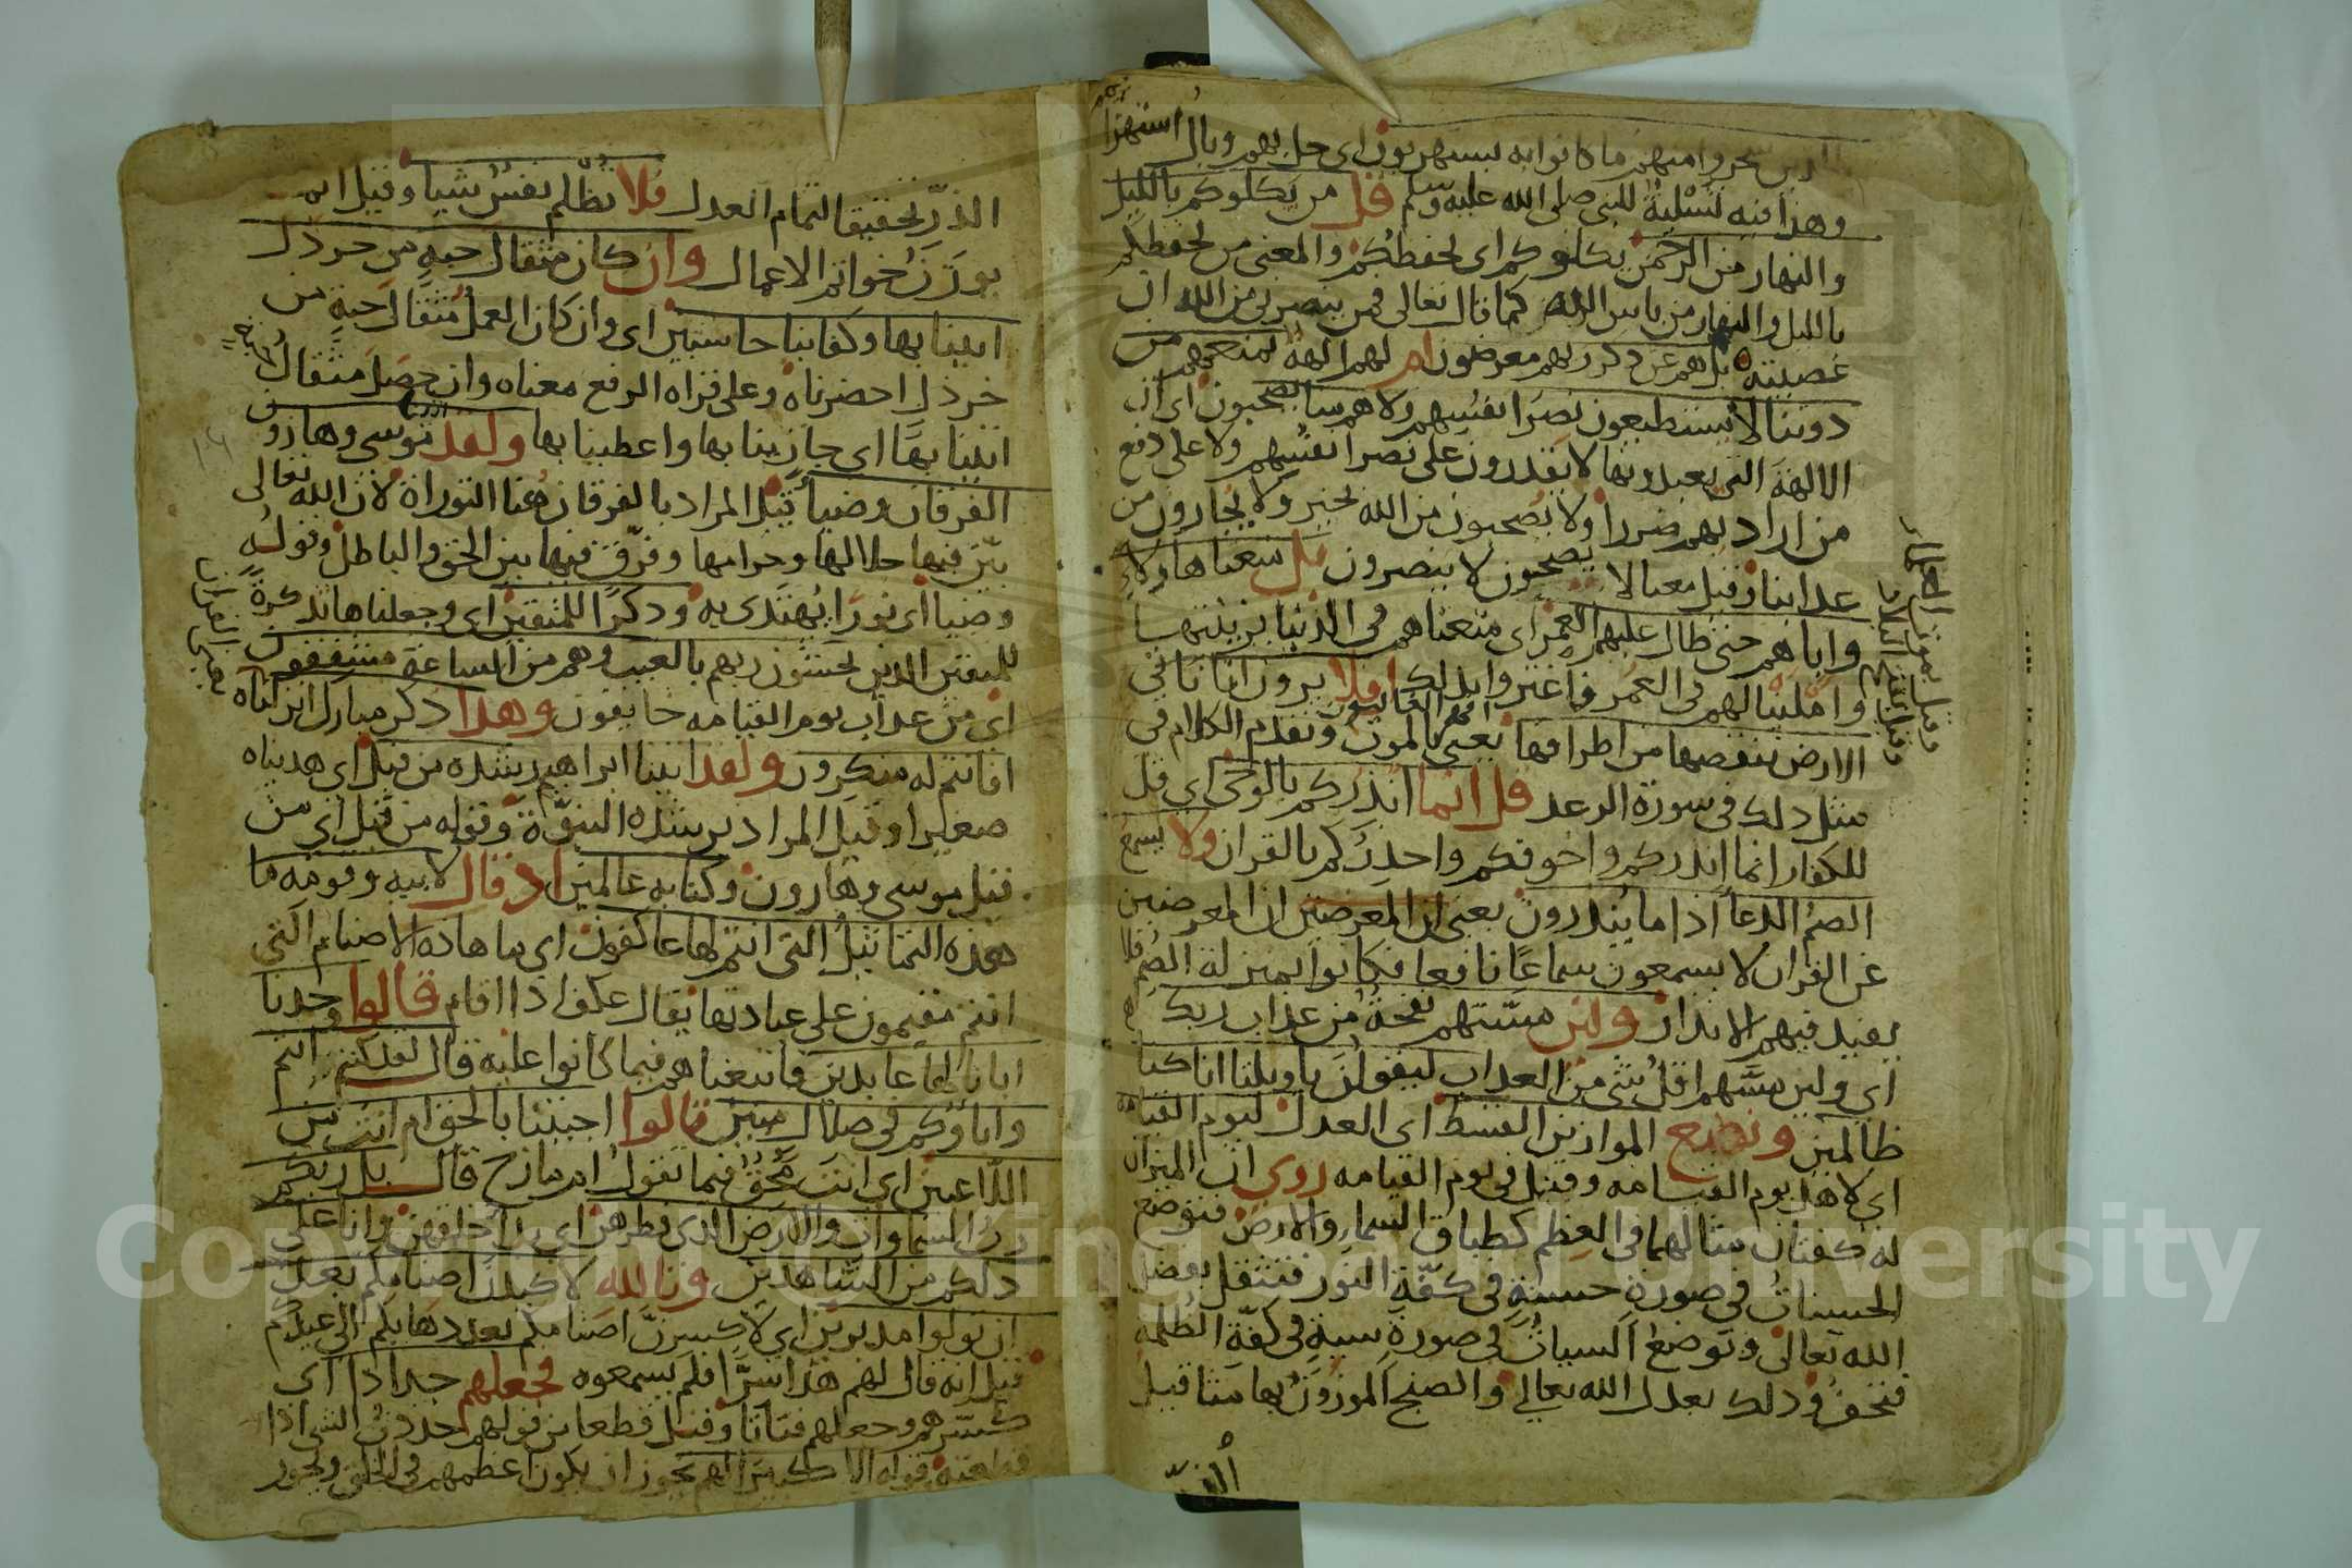 الذين سخروا منهم ما كانوا به يستهزيون اى حل بهم وبال استهزا
وهذا فيه تسلية للنبى صلى الله عليه وسلم قل من يكلوكم بالليل
والنهار من الرحمن يكلوكم اى يحفظكم والمعنى من يحفظكم
بالليل والنهار من باس الله كما قال تعالى فمن ينصرنى من الله ان
عصيته بل هم عن ذكر ربهم معرضون ام لهم الهة تمنعهم من
دوننا لا يستطيعون نصر انفسهم ولا هم منا يصحبون اى ان
الالهة التى يعبدونها لا يقدرون على نصر انفسهم ولا على دفع
من اراد بهم ضررا ولا يصحبون من الله بخير ولا يجارون من
عذابنا وقيل معنا لا يصحبون لا ينصرون بل متعنا هاولاء
واباهم حتى طال عليهم العمر اى متعناهم فى الدنيا بزينتها
واملينا لهم فى العمر فاغتروا بذلك افلا يرون انا ناتى
الارض ننقصها من اطرافها افهم الغالبون يعنى بالموت وتقدم الكلام فى
مثل ذلك فى سورة الرعد قل انما انذركم بالوحى اى قل
للكفار انما انذركم واخوفكم واحذركم بالقران ولا يسمع
الصم الدعا اذا ما ينذرون يعنى ان المعرضين ان المعرضين
عن القران لا يسمعون سماعا نافعا فكانوا بمنزلة الصم فلا
يفيد فيهم الانذار ولين مستهم نفحة من عذاب ربك
اى ولين مسهم اقل شى من العذاب ليقولن ياويلنا انا كنا
ظالمين ونضع الموازين القسط اى العدل ليوم القيامه
اى لاهل يوم القيامه وقيل فى يوم القيامه روى ان الميزان
له كفتان مثالهما فى العظم كطباق السما والارض فتوضع
الحسنات فى صورة حسنة فى كفة النور فتثقل بفضل
الله تعالى وتوضع السيات فى صورة سية فى كفة الظلمة
فتخف وذلك بعدل الله تعالى والصنج الموزون بها مثاقيل
الذر
الذر تحقيقا لتمام العدل فلا تظلم نفس شيا وقيل انما
يوزن خواتم الاعمال وان كان مثقال حبة من خردل
اتينا بها وكفا بنا حاسبين اى وان كان العمل مثقال حبة من
خردل احضرناه وعلى قراه الرفع معناه وان حصل مثقال
اتينا بها اى جازينا بها واعطينا بها ولقد اتينا موسى وهارون
الفرقان وضيا قيل المراد بالفرقان هنا التوراة لان الله تعالى
بين فيها حلالها وحرامها وفرق فيها بين الحق والباطل وقوله
وضيا اى نورا يهتدى به وذكرا للمتقين اى وجعلناها تذكرة
للمتقين الذين يخشون ربهم بالغيب وهم من الساعة مشفقون
اى من عذاب يوم القيامه خايفون وهذا ذكر مبارك انزلناه
افانتم له منكرون ولقد اتينا ابراهيم رشده من قبل اى هديناه
صغيرا وقيل المراد برشده النبوة وقوله من قبل اى من
قبل موسى وهارون وكنا به عالمين اذ قال لابيه وقومه ما
هذه التماثيل التى انتم لها عاكفون اى ما هاذه الاصنام التى
انتم مقيمون على عبادتها يقال عكف اذا اقام قالوا وجدنا
ابانا لها عابدين فاتبعناهم فيما كانوا عليه قال لقد كنتم انتم
واباوكم فى ضلال مبين قالوا اجيتنا بالحق ام انت من
اللاعبين اى انت محق فيما تقول ام مازح قال بل ربكم
رب السماوات والارض الذى فطرهن اى خلقهن وانا على
ذلكم من الشاهدين وتالله لاكيدن اصنامكم بعد
ان تولوا مدبرين اى لاكسرن اصنامكم بعد ذهابكم الى عيدكم
قيل انه قال لهم هذا سرا فلم يسمعوه فجعلهم جذاذا اى
كسرهم وجعلهم فتاتا وقيل قطعا من قولهم جذذت الشى اذا
قطعته قوله الا كبيرا لهم يجوز ان يكون اعظمهم فى الخلق ويجوز
Copyright © King Saud University